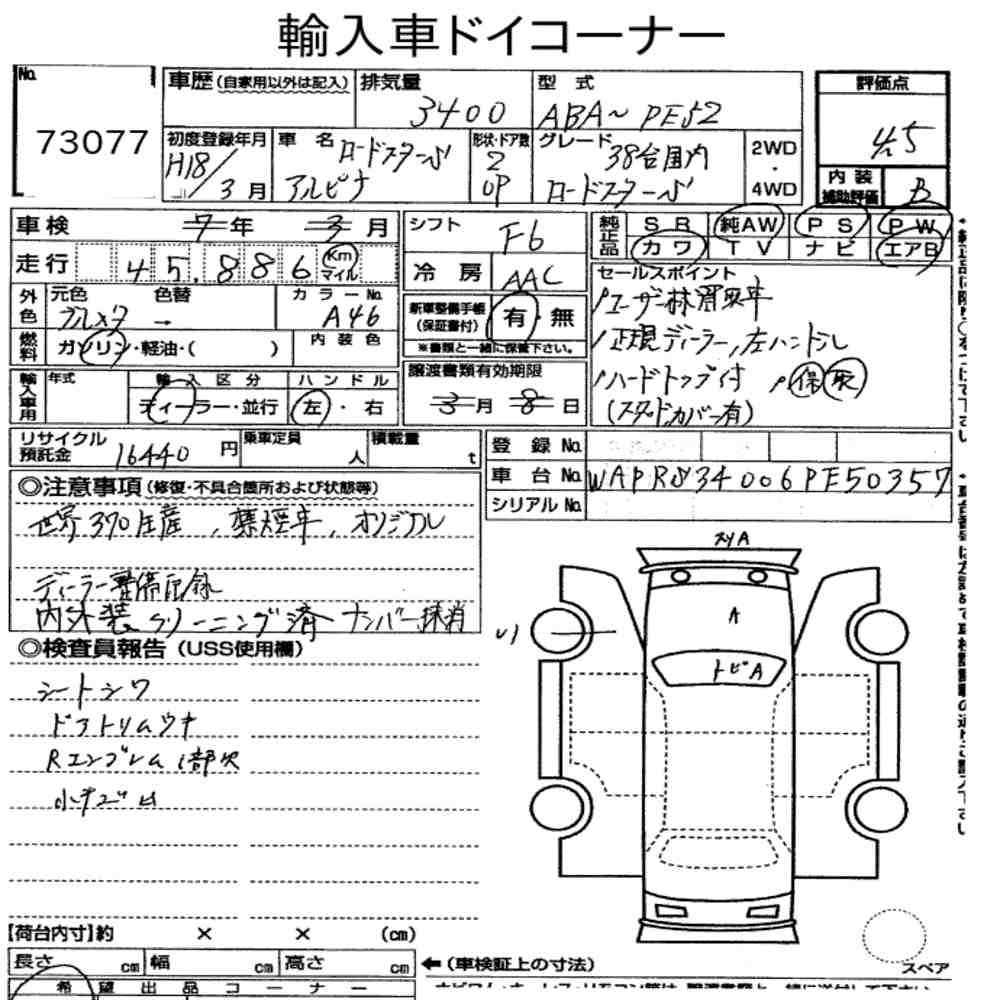 輸入車ドイコーナー
No. 73077
車歴 (自家用以外は記入) 排気量 3400 型式 ABA〜PE52
評価点 4.5
初度登録年月 H18/3月 車名 アルピナ ロードスターS 形状・ドア数 2 OP グレード 38台国内 ロードスターS 2WD・4WD
内装補助評価 B
車検 7年 3月 シフト F6
純正品 SR 純AW PS PW
カワ TV ナビ エアB
走行 45,886 Km マイル
冷房 AAC
外色 元色 ブルメタ 色替 → カラーNo. A46
新車整備手帳 (保証書付) 有・無
※書類と一緒に保管下さい。
セールスポイント
ユーザー抹消取車
正規ディーラー,左ハンドル
ハードトップ付 保 取
(スタッドカバー有)
燃料 ガソリン・軽油・( ) 内装色
輸入車用 年式 輸入区分 ディーラー・並行 ハンドル 左・右
譲渡書類有効期限 3月 8日
リサイクル預託金 16440円 乗車定員 人 積載量 t
登録No.
車台No. WAPRS34006PE50357
シリアルNo.
◎注意事項 (修復・不具合箇所および状態等)
世界370生産,禁煙車,オリジナル
ディーラー整備記録
内外装クリーニング済 ナンバー抹消
◎検査員報告 (USS使用欄)
シートシワ
ドアトリムウキ
Rエンブレム1部欠
小キズ
A
A
トビA
【荷台内寸】約 × × (cm)
長さ cm 幅 cm 高さ cm
←(車検証上の寸法)
スペア
希望出品コーナー